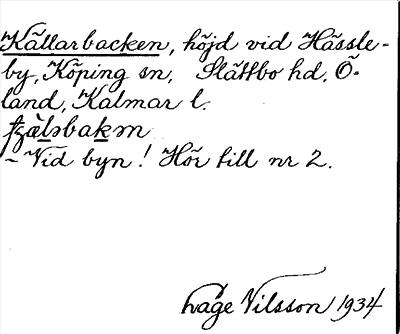 Källarbacken, höjd vid Hässle-
by, Köping sn, Slättbo hd, Ö-
land, Kalmar l.
– Vid byn! Hör till nr 2.
Åge Nilsson 1934